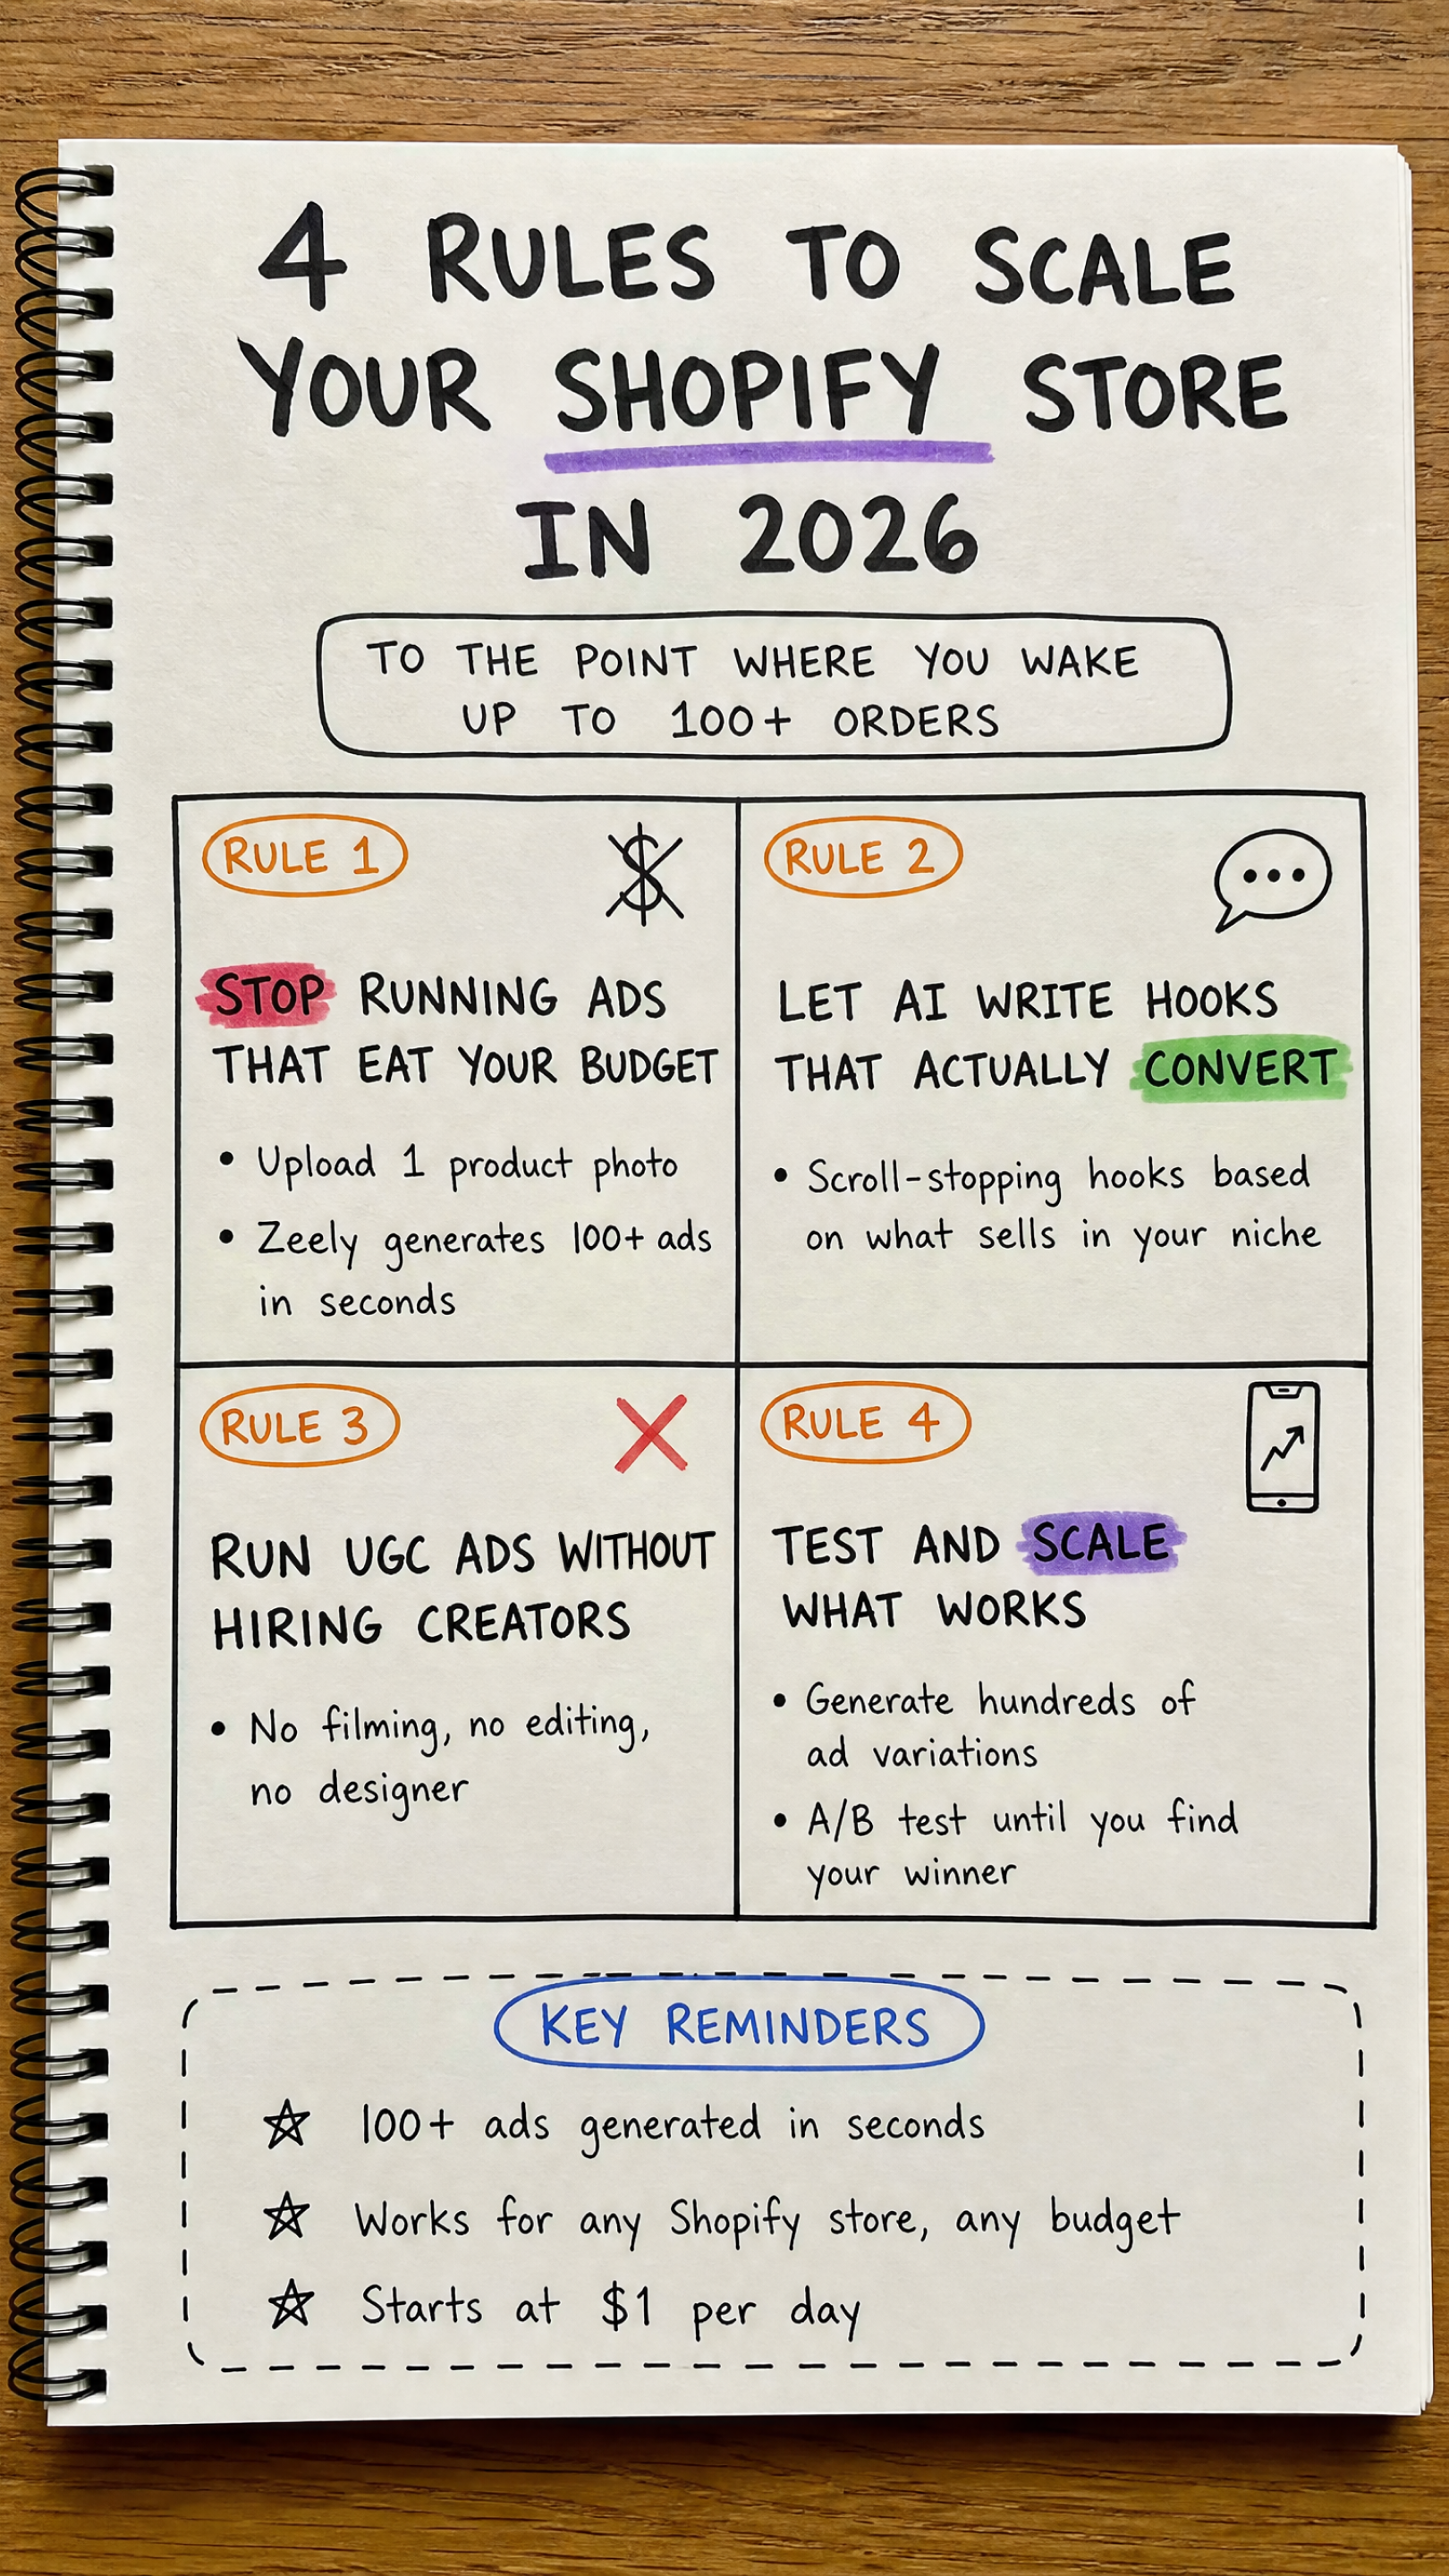 4 RULES TO SCALE
YOUR SHOPIFY STORE
IN 2026
TO THE POINT WHERE YOU WAKE
UP TO 100+ ORDERS
RULE 1
STOP RUNNING ADS
THAT EAT YOUR BUDGET
• Upload 1 product photo
• Zeely generates 100+ ads
in seconds
RULE 2
LET AI WRITE HOOKS
THAT ACTUALLY CONVERT
• Scroll-stopping hooks based
on what sells in your niche
RULE 3
RUN UGC ADS WITHOUT
HIRING CREATORS
• No filming, no editing,
no designer
RULE 4
TEST AND SCALE
WHAT WORKS
• Generate hundreds of
ad variations
• A/B test until you find
your winner
KEY REMINDERS
☆ 100+ ads generated in seconds
☆ Works for any Shopify store, any budget
☆ Starts at $1 per day